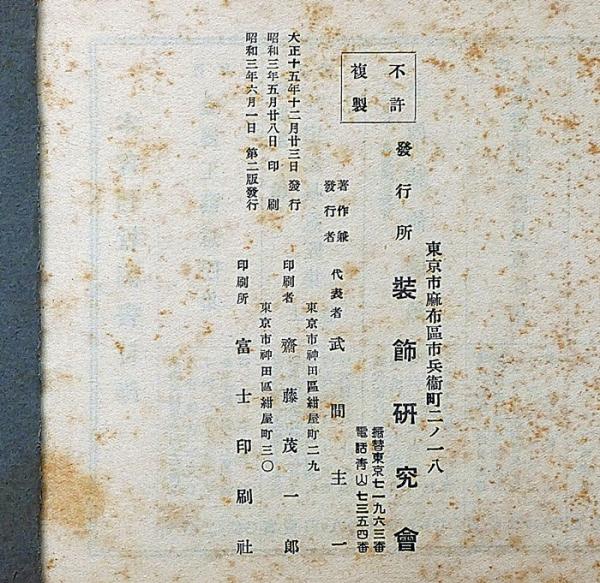 不許
複製
東京市麻布區市兵衞町二ノ一八
發行所 裝飾硏究會
振替東京七一九六三番
電話靑山七三五四番
著作兼
發行者 代表者 武間主一
東京市神田區紺屋町二九
印刷者 齋藤茂一郎
東京市神田區紺屋町三〇
印刷所 富士印刷社
大正十五年十二月廿三日 發行
昭和三年五月廿八日 印刷
昭和三年六月一日 第二版發行